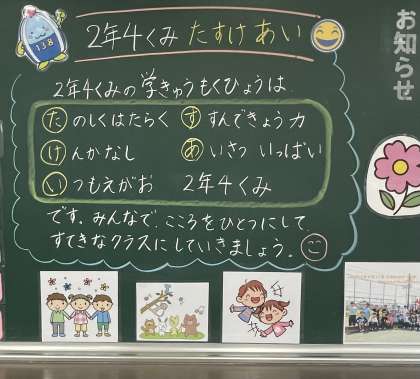 2年4くみ たすけあい
お知らせ
138
2年4くみの学きゅうもくひょうは
たのしくはたらく すすんできょう力
けんかなし あいさついっぱい
いつもえがお 2年4くみ
です。みんなで、こころをひとつにして
すてきなクラスにしていきましょう。